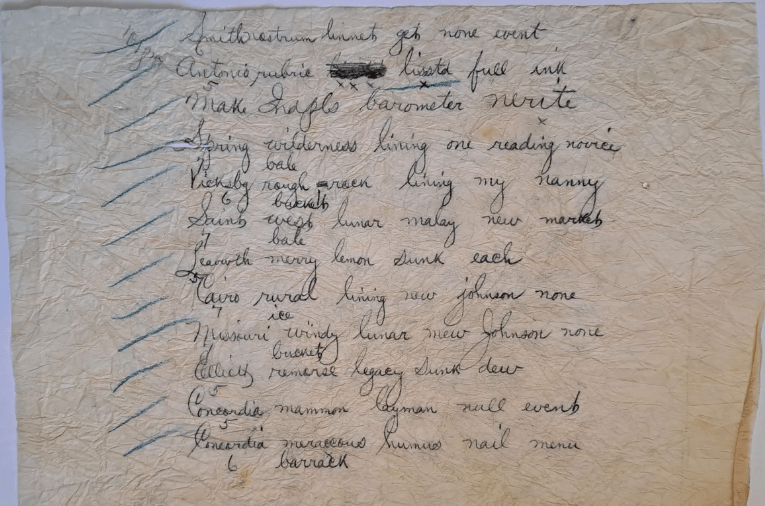 Smith nostrum linnet get none event
Antonio rubric lisstd full ink
Make Indpls barometer nerite
Spring wilderness lining one reading novice
bale
Vicksbg rough rack lining my nanny
6 bucket
Saint west lunar malay new market
7 bale
Leavwth merry lemon sunk each
Cairo rural lining new johnson none
7 ice
Missouri windy lunar mew Johnson none
bucket
Elliott remorse legacy sunk dew
Concordia mammon layman null event
5
Concordia meraceous humus nail menu
6 barrack